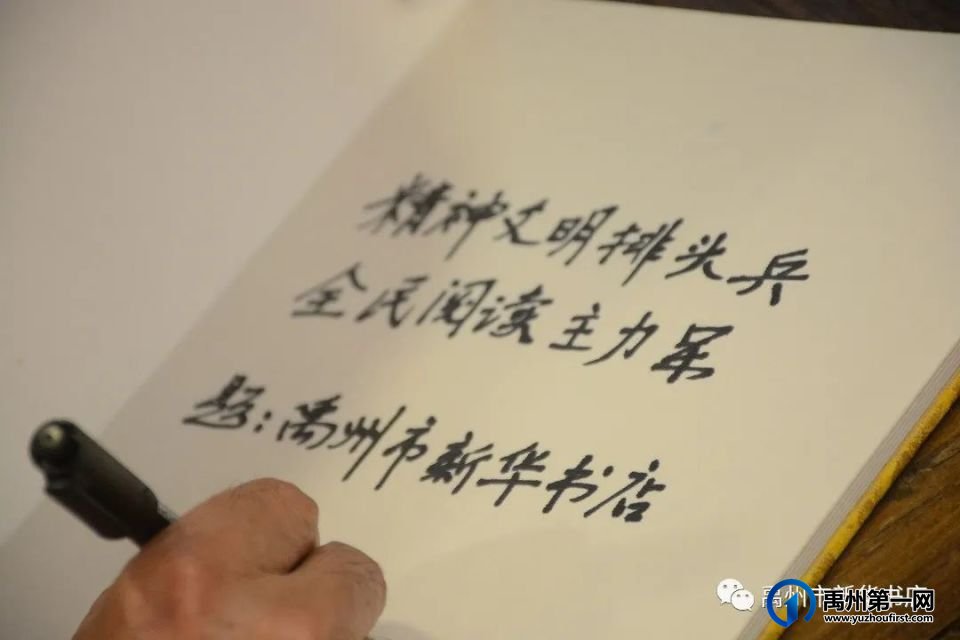 精神文明排头兵
全民阅读主力军
题:禹州市新华书店
禹州市新华书店
禹州第一网
www.yuzhoufirst.com